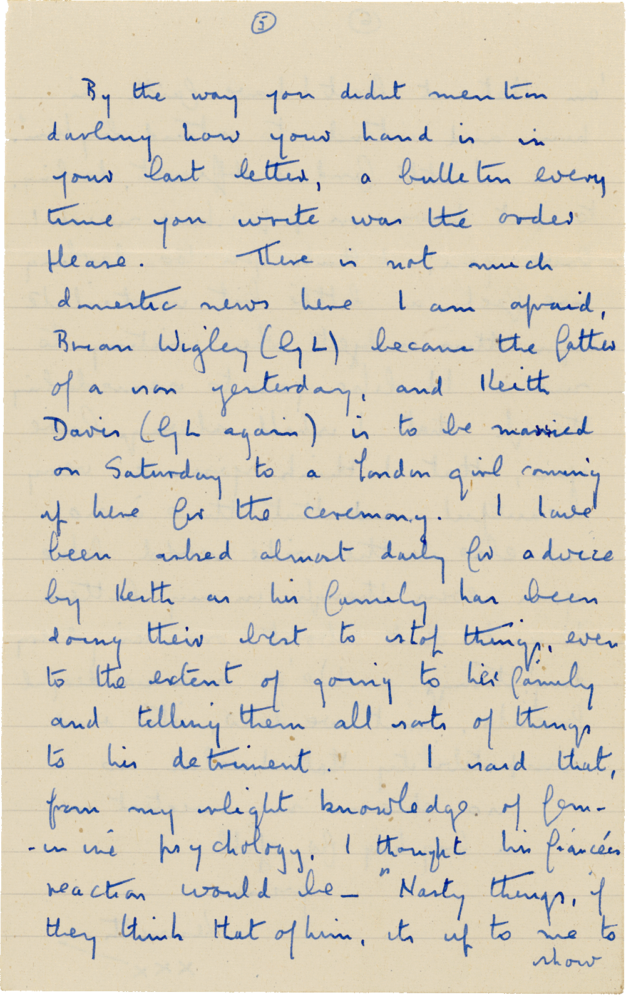 5
By the way you didnt mention
darling how your hand is in
your last letter, a bulletin every
time you write was the order
please. There is not much
domestic news here I am afraid,
Brian Wigley (GL) became the father
of a son yesterday, and Keith
Davis (GL again) is to be married
on Saturday to a London girl coming
up here for the ceremony. I have
been asked almost daily for advice
by Keith as his family has been
doing their best to stop things, even
to the extent of going to her family
and telling them all sorts of things
to his detriment. I said that,
from my slight knowledge of fem-
-inine psychology, I thought his fiancées
reaction would be — "Nasty things, if
they think that of him, its up to me to
show